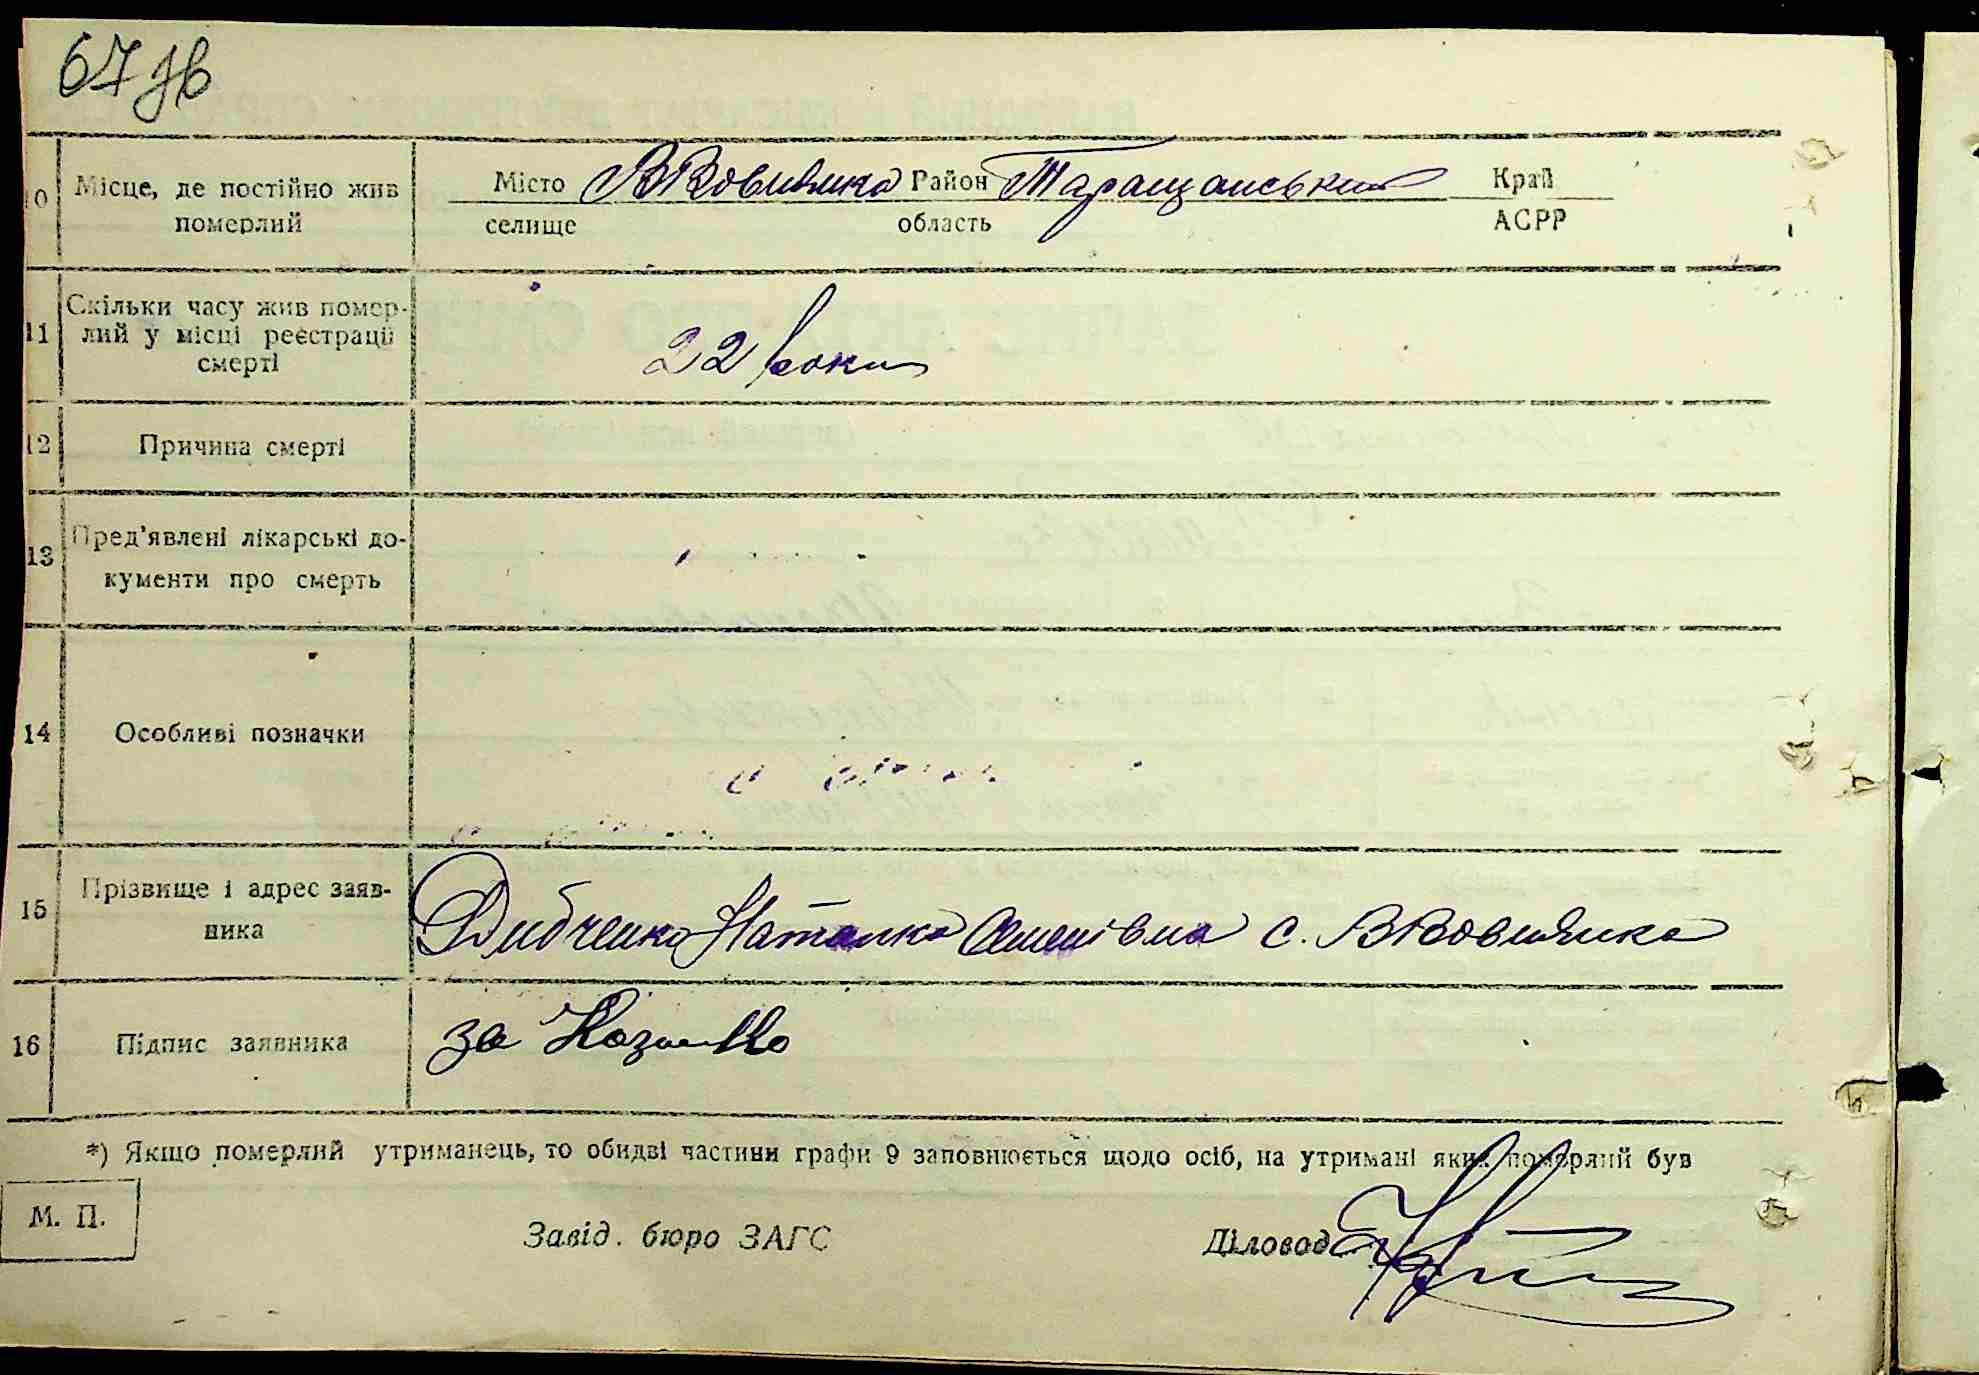 67 зв
10 Місце, де постійно жив померлий
Місто В Вовнянка Район Таращанський Край
селище область АСРР
11 Скільки часу жив помер-
лий у місці реєстрації
смерті
22 роки
12 Причина смерті
13 Пред'явлені лікарські до-
кументи про смерть
14 Особливі позначки
15 Прізвище і адрес заяв-
ника
Дибченко Наталка с. В Вовнянка
16 Підпис заявника
за
*) Якщо померлий утриманець, то обидві частини графи 9 заповнюється щодо осіб, на утримані яких померлий був
М. П.
Завід. бюро ЗАГС Діловод